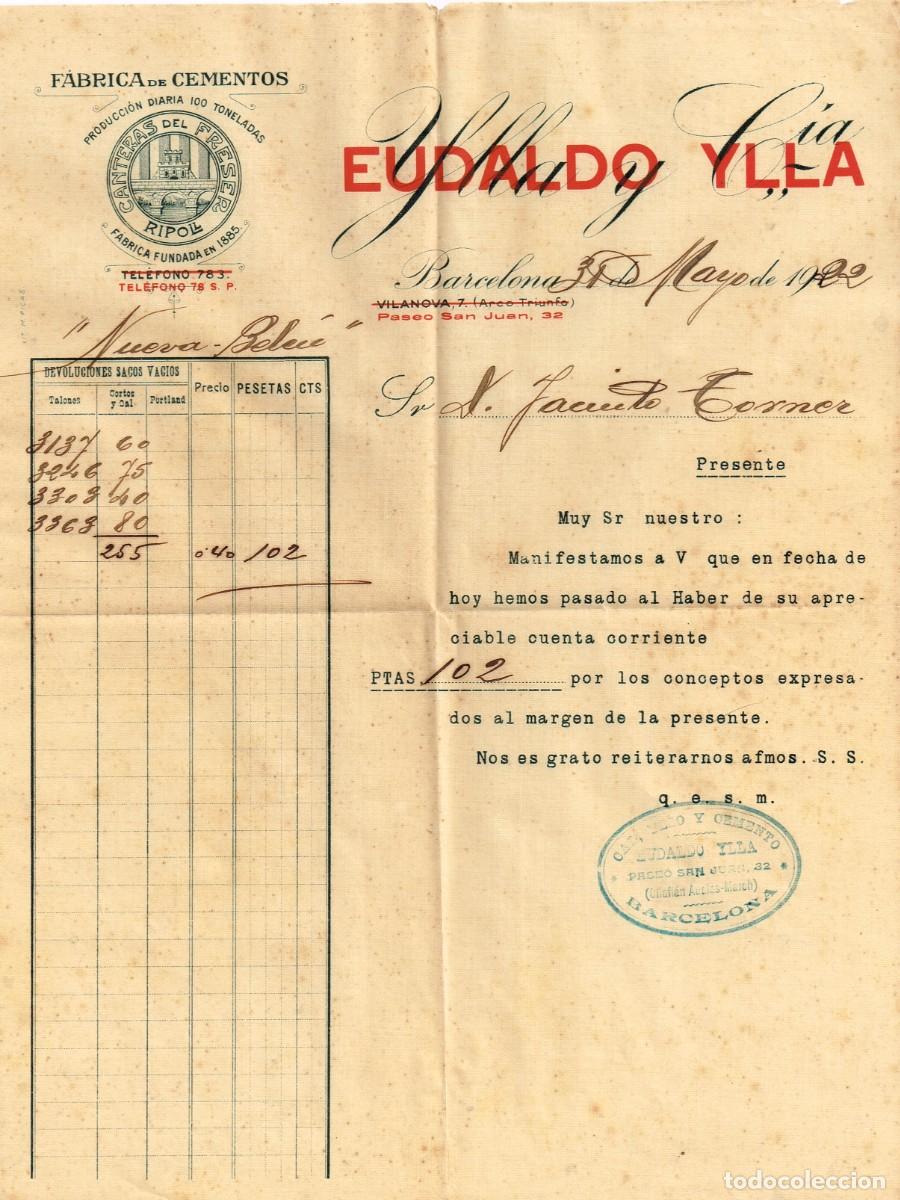 FÁBRICA DE CEMENTOS
PRODUCCIÓN DIARIA 100 TONELADAS
CANTERAS DEL FRESER
RIPOLL
FÁBRICA FUNDADA EN 1885
TELÉFONO 783.
TELÉFONO 78 S. P.
Ylla y Cía
EUDALDO YLLA
Barcelona 31 de Mayo de 1922
VILANOVA, 7. (Arco Triunfo)
Paseo San Juan, 32
"Nueva-Belén"
DEVOLUCIONES SACOS VACIOS
Talones Cortos y Cal Portland Precio PESETAS CTS
3137 60
3246 75
3303 40
3363 80
255 0'40 102
Sr D. Jacinto Torner
Presente
Muy Sr nuestro :
Manifestamos a V que en fecha de
hoy hemos pasado al Haber de su apre-
ciable cuenta corriente
PTAS 102 por los conceptos expresa-
dos al margen de la presente.
Nos es grato reiterarnos afmos. S. S.
q. e. s. m.
CAL, YESO Y CEMENTO
EUDALDO YLLA
PASEO SAN JUAN, 32
(Chaflán Ausias-March)
BARCELONA
todocoleccion